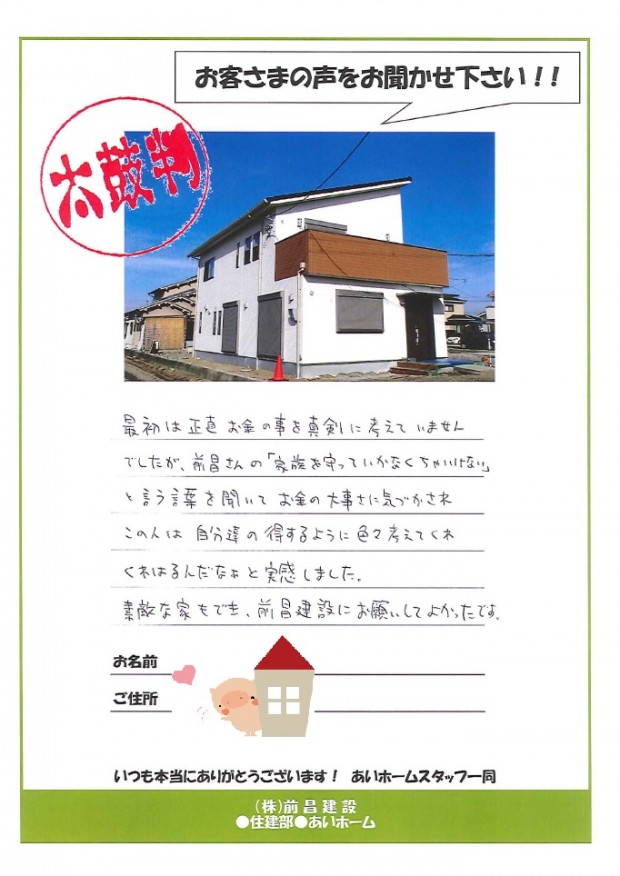 お客さまの声をお聞かせ下さい!!
太鼓判
最初は正直お金の事を真剣に考えていません
でしたが、前昌さんの「家族を守っていかなくちゃいけない」
と言う言葉を聞いてお金の大事さに気づかされ
この人は自分達の得するように色々考えてくれ
くれはるんだなぁと実感しました。
素敵な家もでき、前昌建設にお願いしてよかったです。
お名前
ご住所
いつも本当にありがとうございます! あいホームスタッフ一同
(株)前昌建設
●住建部●あいホーム